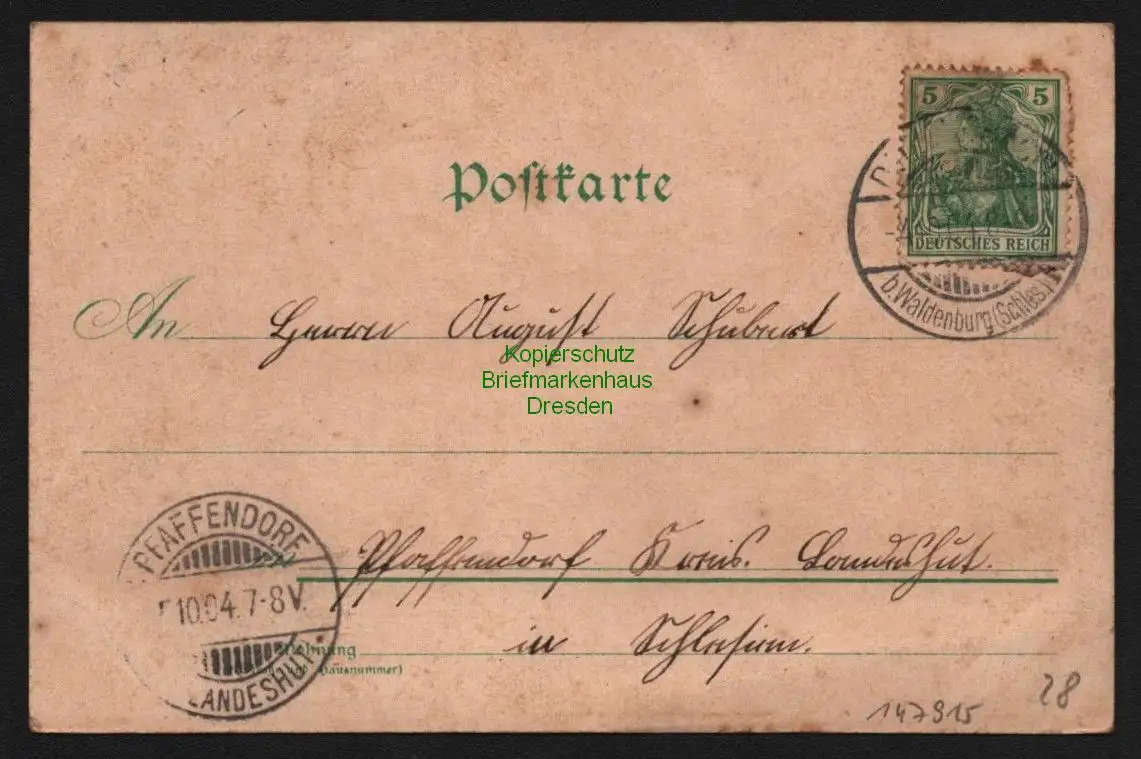 5 5
DEUTSCHES REICH
b. Waldenburg (Schles.)
Postkarte
An Herrn August Schubert
Kopierschutz
Briefmarkenhaus
Dresden
Pfaffendorf Kreis. Landeshut.
in Schlesien.
PFAFFENDORF
10.04.7-8V.
LANDESHUT
Wohnung
Hausnummer)
147915
28